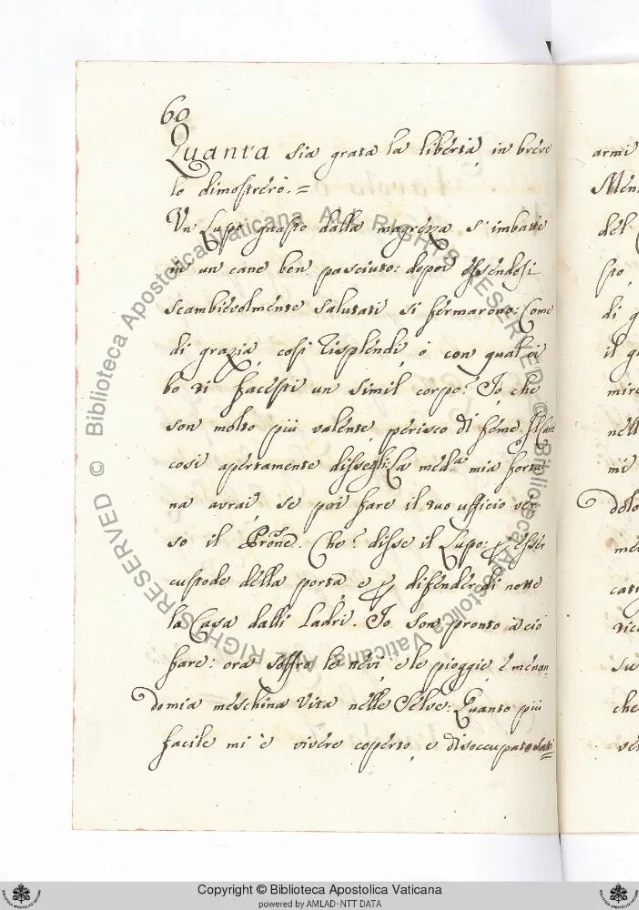 60
Quanta sia grata la libertà, in breve
lo dimostrerò.=
Un Lupo guasto dalla magrezza s'imbatté
in un cane ben pasciuto: depoi essendosi
scambievolmente salutati si fermarono: Come
di grazia, così risplendi, o con qual ci
bo ti facesti un simil corpo? Io, che
son molto più valente, perisco di fame. Il Cane
così apertamente dissegli: La med.a mia fortu
na avrai, se poi fare il tuo ufficio ver
so il Prone. Che? disse il Lupo: p esser
custode della porta, e p difender di notte
la Casa dalli ladri. Io son pronto a ciò
fare: ora soffro le nevi, e le pioggie, e menan
do mia meschina vita nelle Selve: Quanto più
facile mi è vivere coperto, e disoccupato
armi
del
di g
il g
mi
dolo
che
Copyright © Biblioteca Apostolica Vaticana
powered by AMLAD-NTT DATA
© Biblioteca Apostolica Vaticana ALL RIGHTS RESERVED © Biblioteca Apostolica Vaticana ALL RIGHTS RESERVED